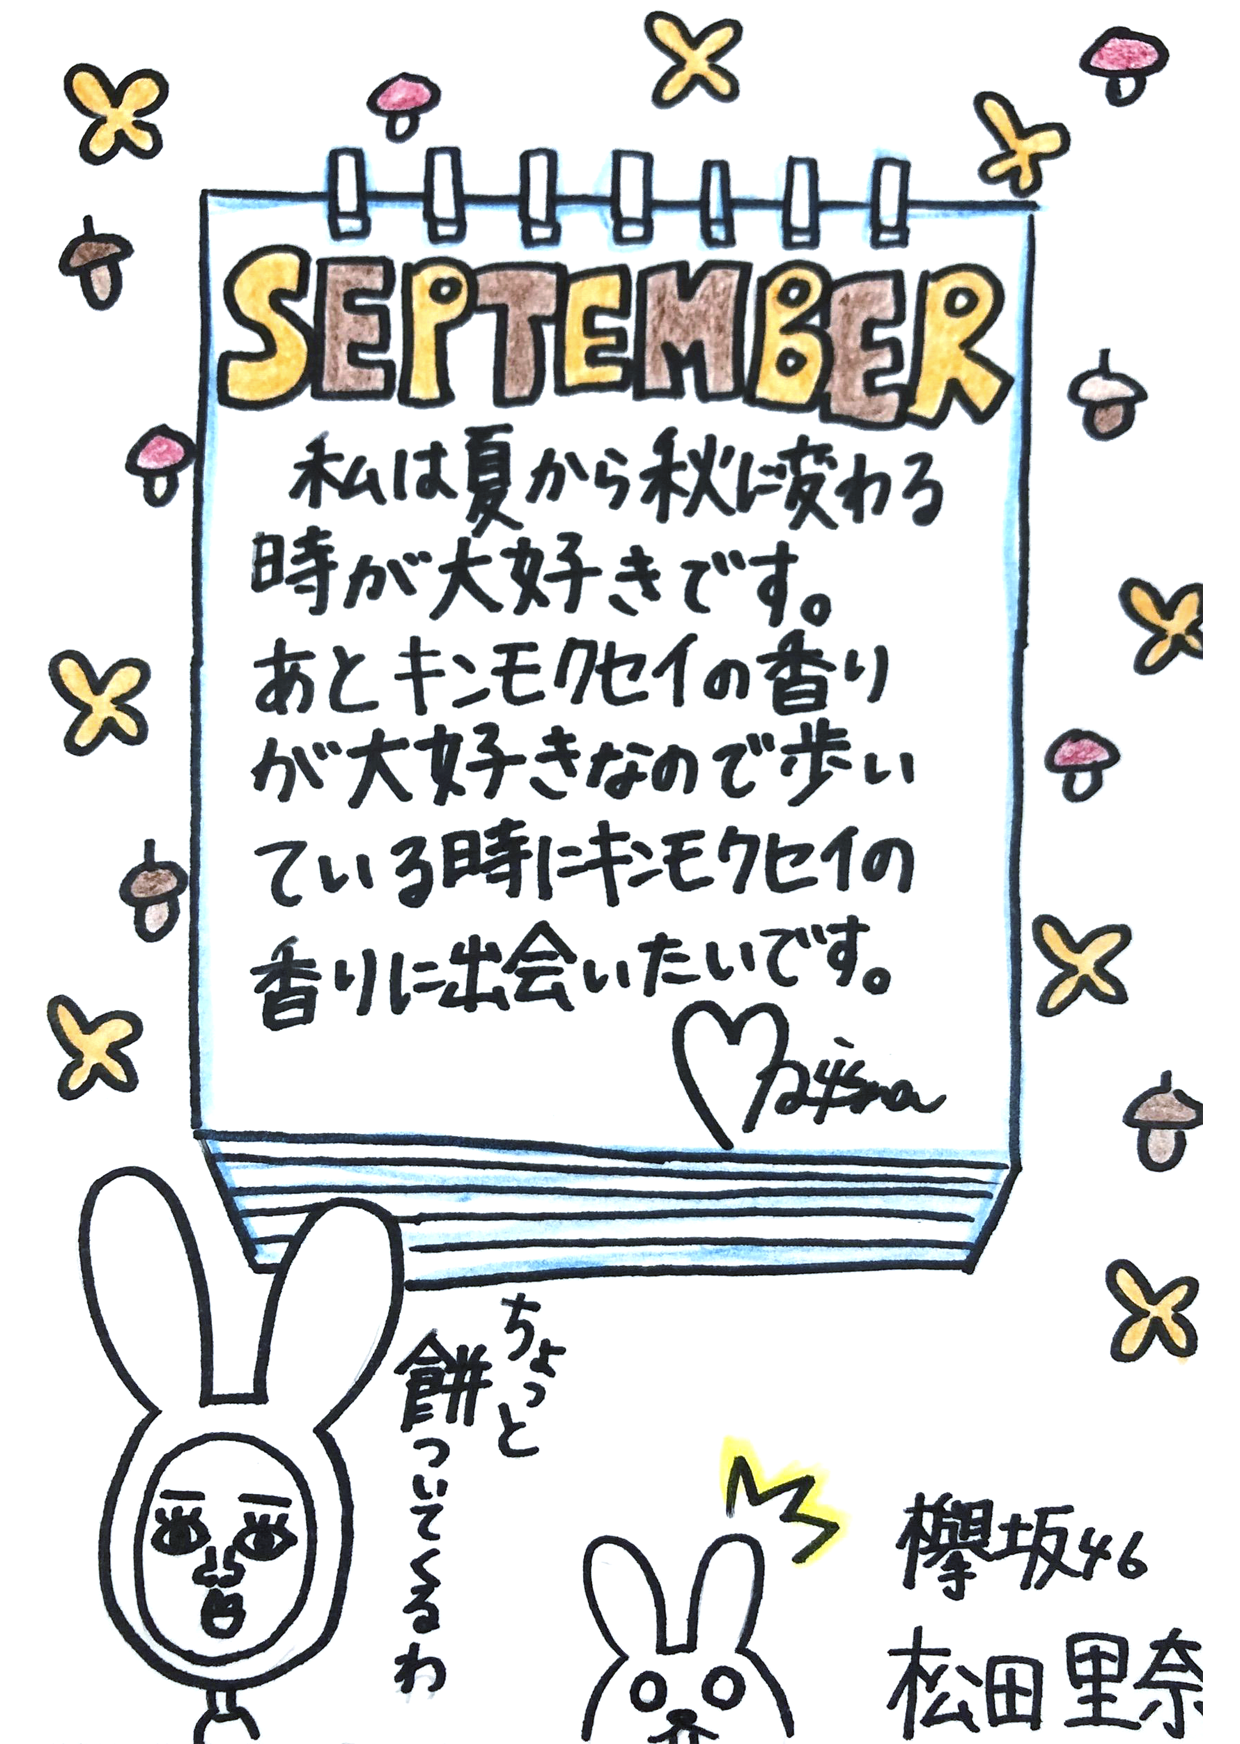 SEPTEMBER
私は夏から秋に変わる
時が大好きです。
あとキンモクセイの香り
が大好きなので歩い
ている時にキンモクセイの
香りに出会いたいです。
ちょっと
餅ついてくるわ
欅坂46
松田里奈